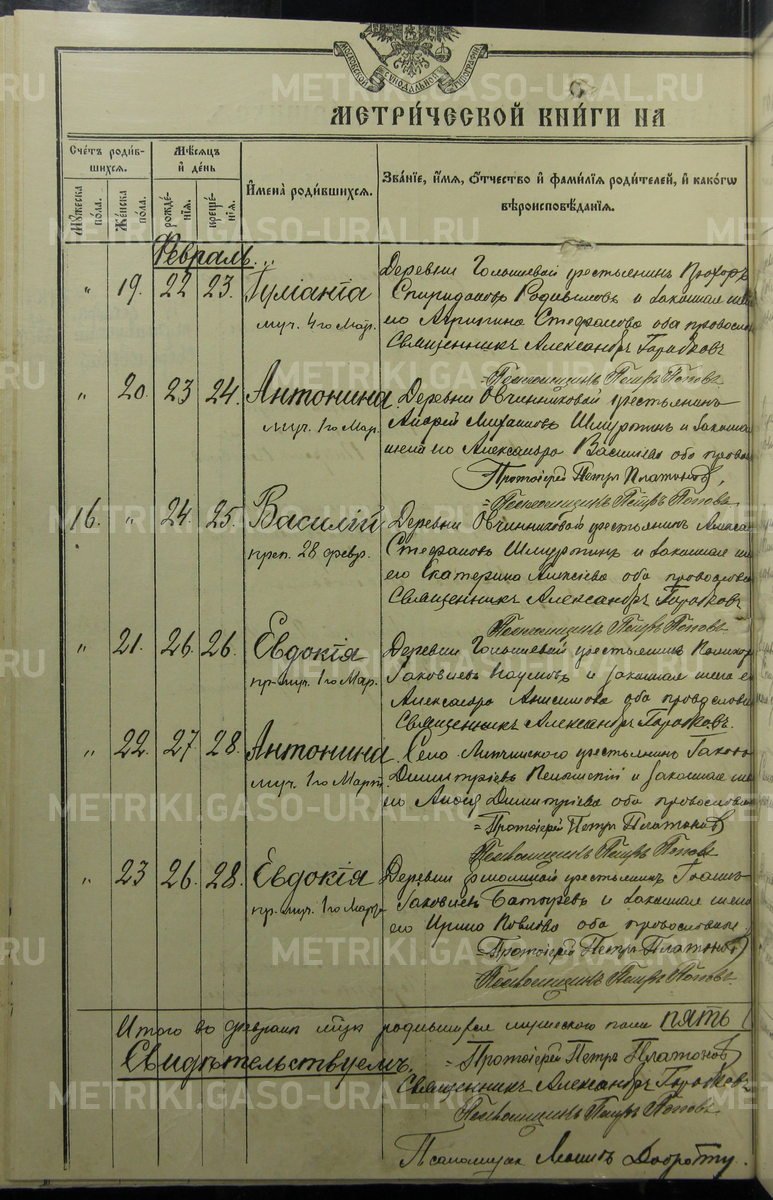 МОСКОВСКОЙ СѴНОДАЛЬНОЙ ТИПОГРАФІИ
МЕТРИ́ЧЕСКОЙ КНИ́ГИ НА
Сче́тъ роди́в-
шихся.
Мѣ́сяцъ
и҆ де́нь
И҆мена̀ роди́вшихся.
Зва́нїе, и҆́мя, ѻ҆́тчество и҆ фами́лїѧ роди́телей, и҆ како́гѡ
вѣроисповѣ́данїѧ.
Му́жеска по́ла.
Же́нска по́ла.
рожде́нїѧ.
креще́нїѧ.
Февраль
" 19. 22 23. Іуліанія
муч. 4го Мар.
Деревни крестьянинъ
Спиридоновъ и законная
его Стефанова оба правосл
Священникъ Александръ Горбковъ
Псаломщикъ Петръ Поповъ
" 20. 23 24. Антонина
муч. 1го Мар.
Деревни Овчинниковой крестьянинъ
Андрей Михаиловъ и законная
жена его Александра Василіева оба правос
Протоіерей Петръ Платоновъ
Псаломщикъ Петръ Поповъ
16. " 24. 25. Василій
преп. 28 февр.
Деревни Овчинниковой крестьянинъ
Стефановъ и законная
его Екатерина Алексіева оба православн
Священникъ Александръ Горбковъ
Псаломщикъ Петръ Поповъ
" 21. 26. 26. Евдокія
пр. муч. 1го Мар.
Деревни крестьянинъ
Іаковлевъ Наумовъ и законная жена е
Александра Анисимова оба православн
Священникъ Александръ Горбковъ.
" 22. 27 28. Антонина
муч. 1го Марта
Села Липчинского крестьянинъ Іаковъ
Димитріевъ и законная
его Димитріева оба православн
Протоіерей Петръ Платоновъ
Псаломщикъ Петръ Поповъ
" 23 26. 28. Евдокія
пр. муч. 1го Марта
Деревни крестьянинъ Іоаннъ
Іаковлевъ и законная жена
его Ирина Павлова оба православные
Протоіерей Петръ Платоновъ
Псаломщикъ Петръ Поповъ
Итого въ февралѣ родившихся мужескаго пола пять
Свидѣтельствуемъ: Протоіерей Петръ Платоновъ
Священникъ Александръ Горбковъ
Псаломщикъ Петръ Поповъ
Псаломщикъ
METRIKI.GASO-URAL.RU